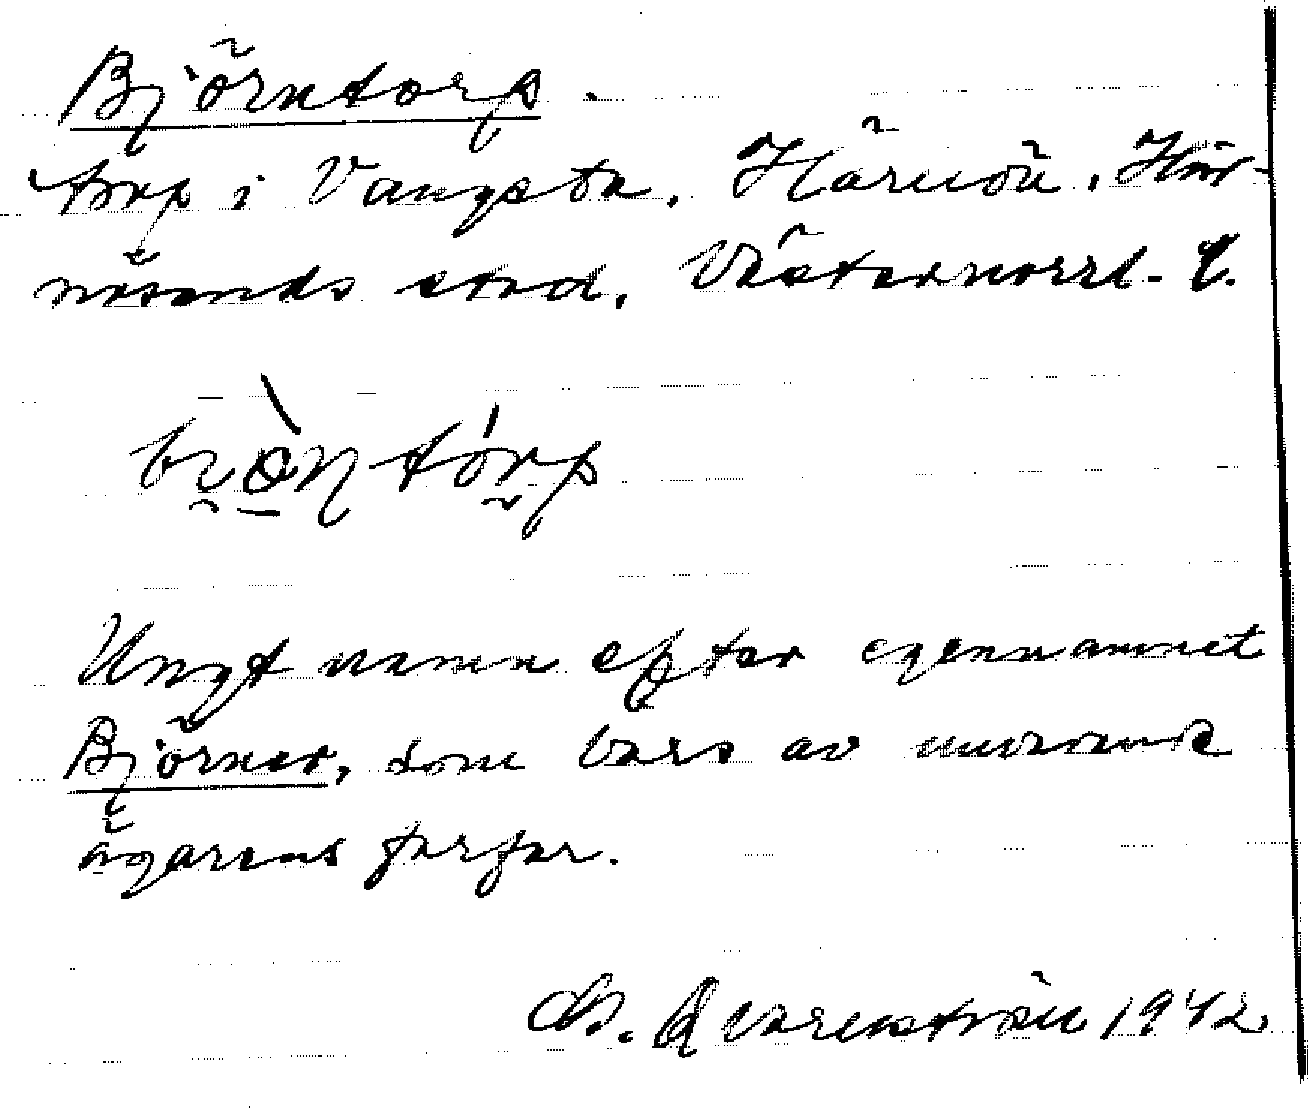 Björntorp.
torp i Vangsta, Härnön, Här-
nösands stad, Västernorrl. l.
Ungt namn efter egennamnet
Björner, som bars av nuvarande
ägarens farfar.
Qvarnström 1942